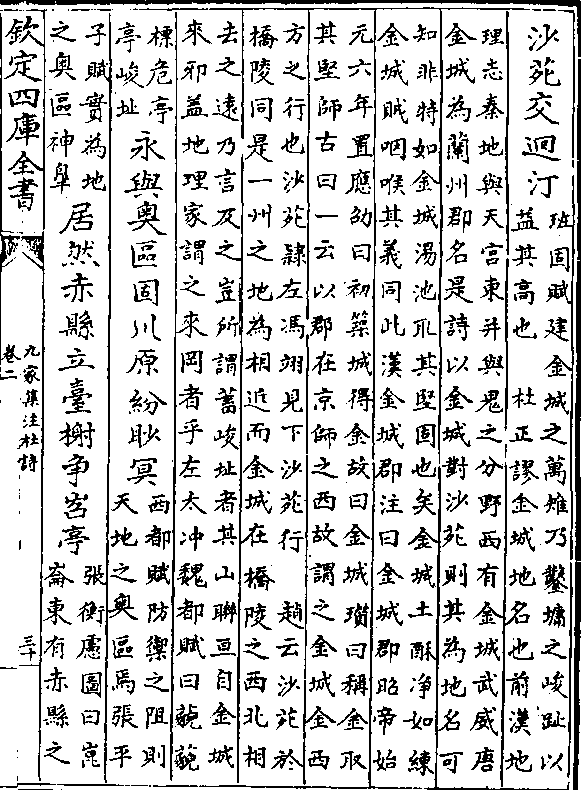 沙苑交迴汀
班固賦建金城之萬雉乃鑿墉之峻趾以
益其高也　杜正謬金城地名也前漢地
理志秦地與天宫東井與鬼之分野西有金城武威唐
金城為蘭州郡名是詩以金城對沙苑則其為地名可
知非特如金城湯池取其堅固也矣金城土酥淨如練
金城賊咽喉其義同此漢金城郡注曰金城郡昭帝始
元六年置應劭曰初築城得金故曰金城瓉曰稱金取
其堅師古曰一云以郡在京師之西故謂之金城金西
方之行也沙苑隸左馮翊見下沙苑行　趙云沙苑於
橋陵同是一州之地為相近而金城在橋陵之西北相
去之遠乃言及之豈所謂蓄峻址者其山聯亘自金城
來邪葢地理家謂之來岡者乎左太冲魏都賦曰藐藐
標危亭
亭峻址
永與奥區固川原紛眇冥
西都賦防禦之阻則
天地之奥區焉張平
子賦實為地
之奥區神臯
居然赤縣立臺榭爭岧亭
張衡慮圖曰崑
崙東有赤縣之
欽定四庫全書
九家集注杜詩
卷二
三十